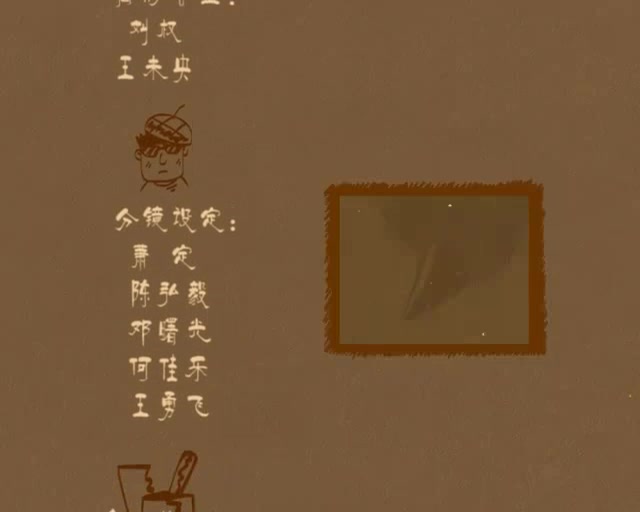 刘 权
王未央
分镜设定:
萧 定
陈弘毅
邓曙光
何佳乐
王勇飞